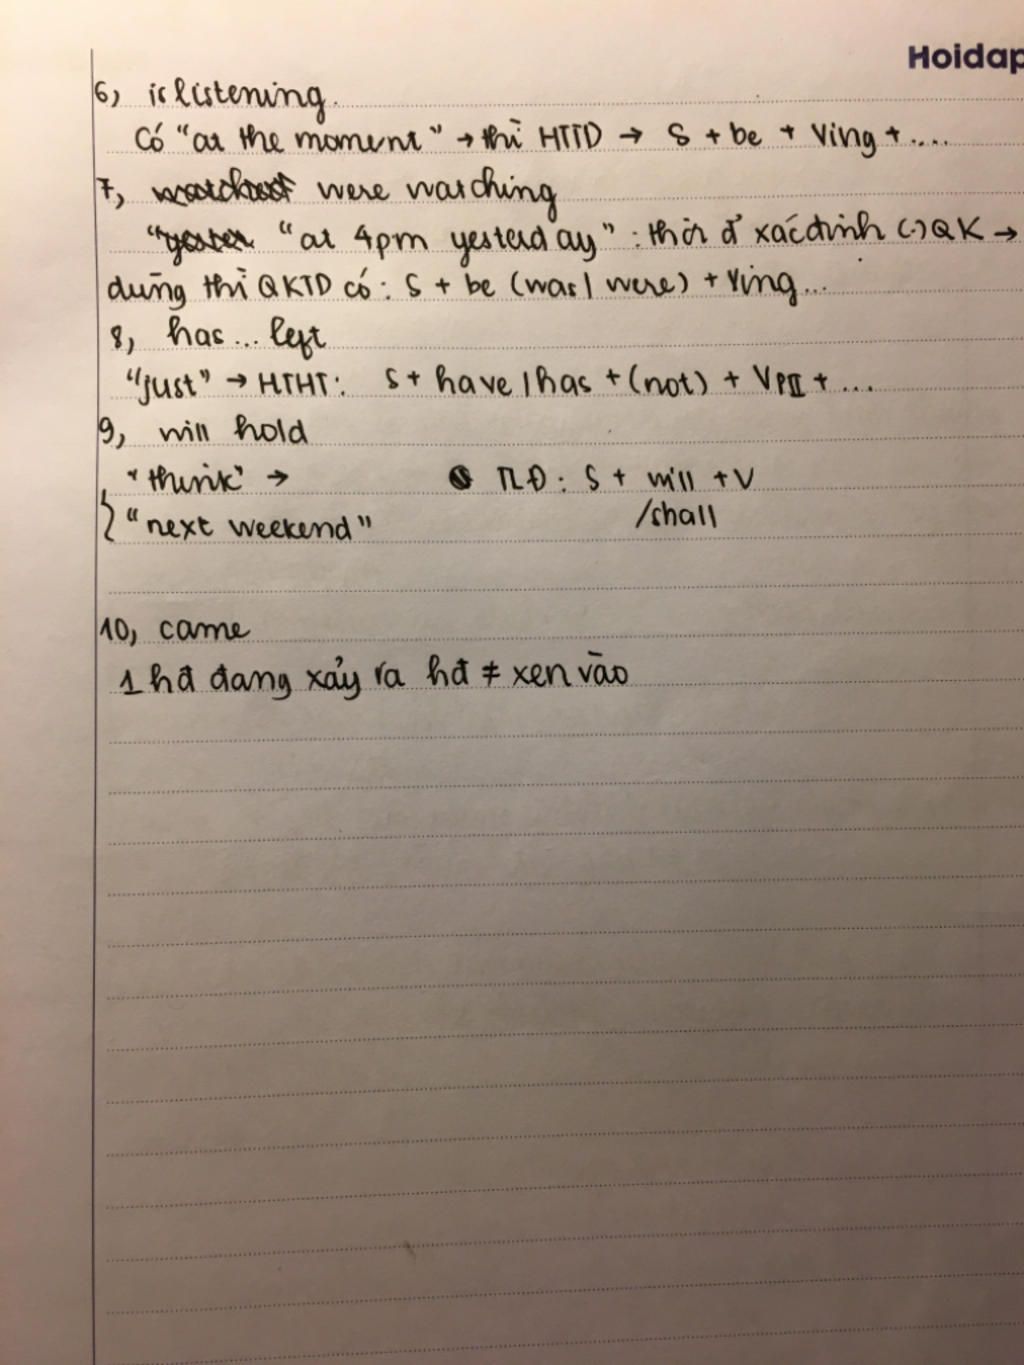 Hoidap
6, is listening.
Có "at the moment" → thì HTTD → S + be + Ving + ....
7, were watching
"at 4pm yesterday" : thời đ' xác định (.) QK →
dùng thì QKTD có : S + be (was / were) + Ving...
8, has ... left
"just" → HTHT : S + have / has + (not) + VPII + ...
9, will hold
"think" → TLĐ : S + will + V
/shall
"next weekend"
10, came
1 hđ đang xảy ra hđ ≠ xen vào